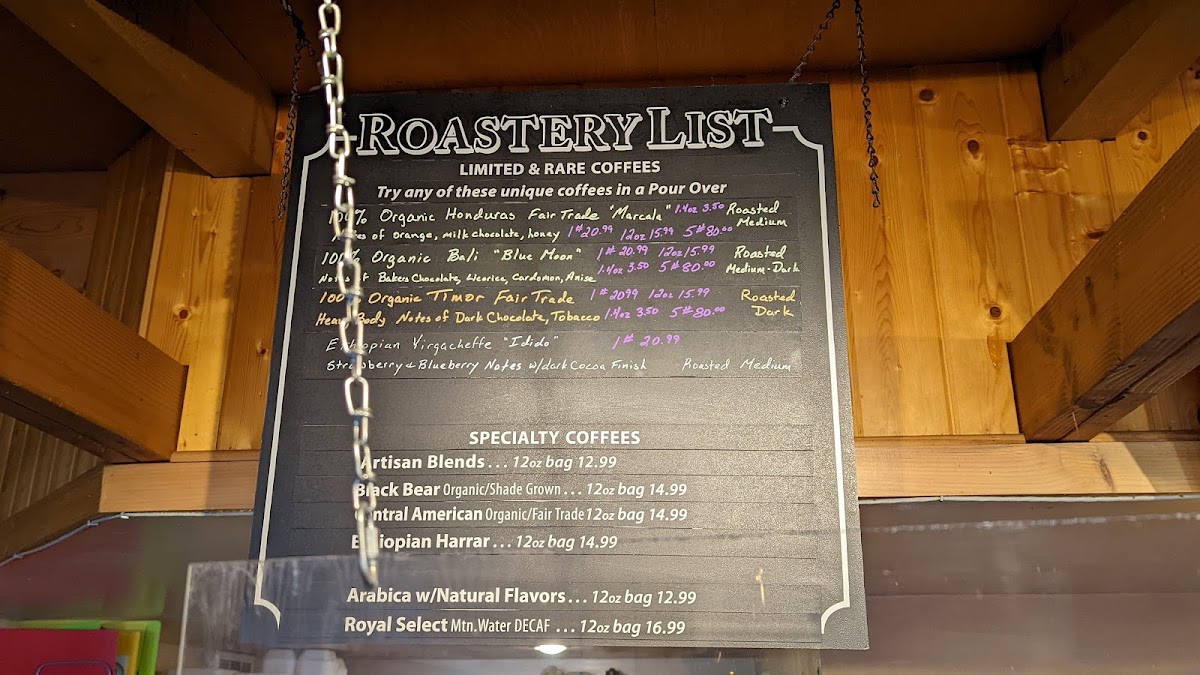 ROASTERY LIST
LIMITED & RARE COFFEES
Try any of these unique coffees in a Pour Over
100% Organic Honduras Fair Trade "Marcala" 1.4oz 3.50 Roasted Medium
Notes of orange, milk chocolate, honey 1# 20.99 12oz 15.99 5# 80.00
100% Organic Bali "Blue Moon" 1# 20.99 12oz 15.99 Roasted Medium-Dark
Notes of Bakers Chocolate, Licorice, Cardomon, Anise 1.4oz 3.50 5# 80.00
100% Organic Timor Fair Trade 1# 20.99 12oz 15.99 Roasted Dark
Heavy Body Notes of Dark Chocolate, Tobacco 1.4oz 3.50 5# 80.00
Ethiopian Yirgacheffe "Idido" 1# 20.99
Strawberry & Blueberry Notes w/dark Cocoa Finish Roasted Medium
SPECIALTY COFFEES
Artisan Blends... 12oz bag 12.99
Black Bear Organic/Shade Grown... 12oz bag 14.99
Central American Organic/Fair Trade 12oz bag 14.99
Ethiopian Harrar... 12oz bag 14.99
Arabica w/Natural Flavors... 12oz bag 12.99
Royal Select Mtn.Water DECAF ... 12oz bag 16.99